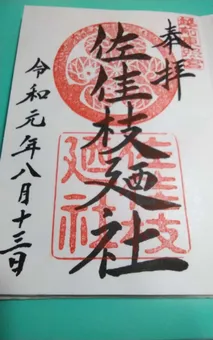 奉拝
佐佳枝廼社
佐佳枝廼社
令和元年八月十三日